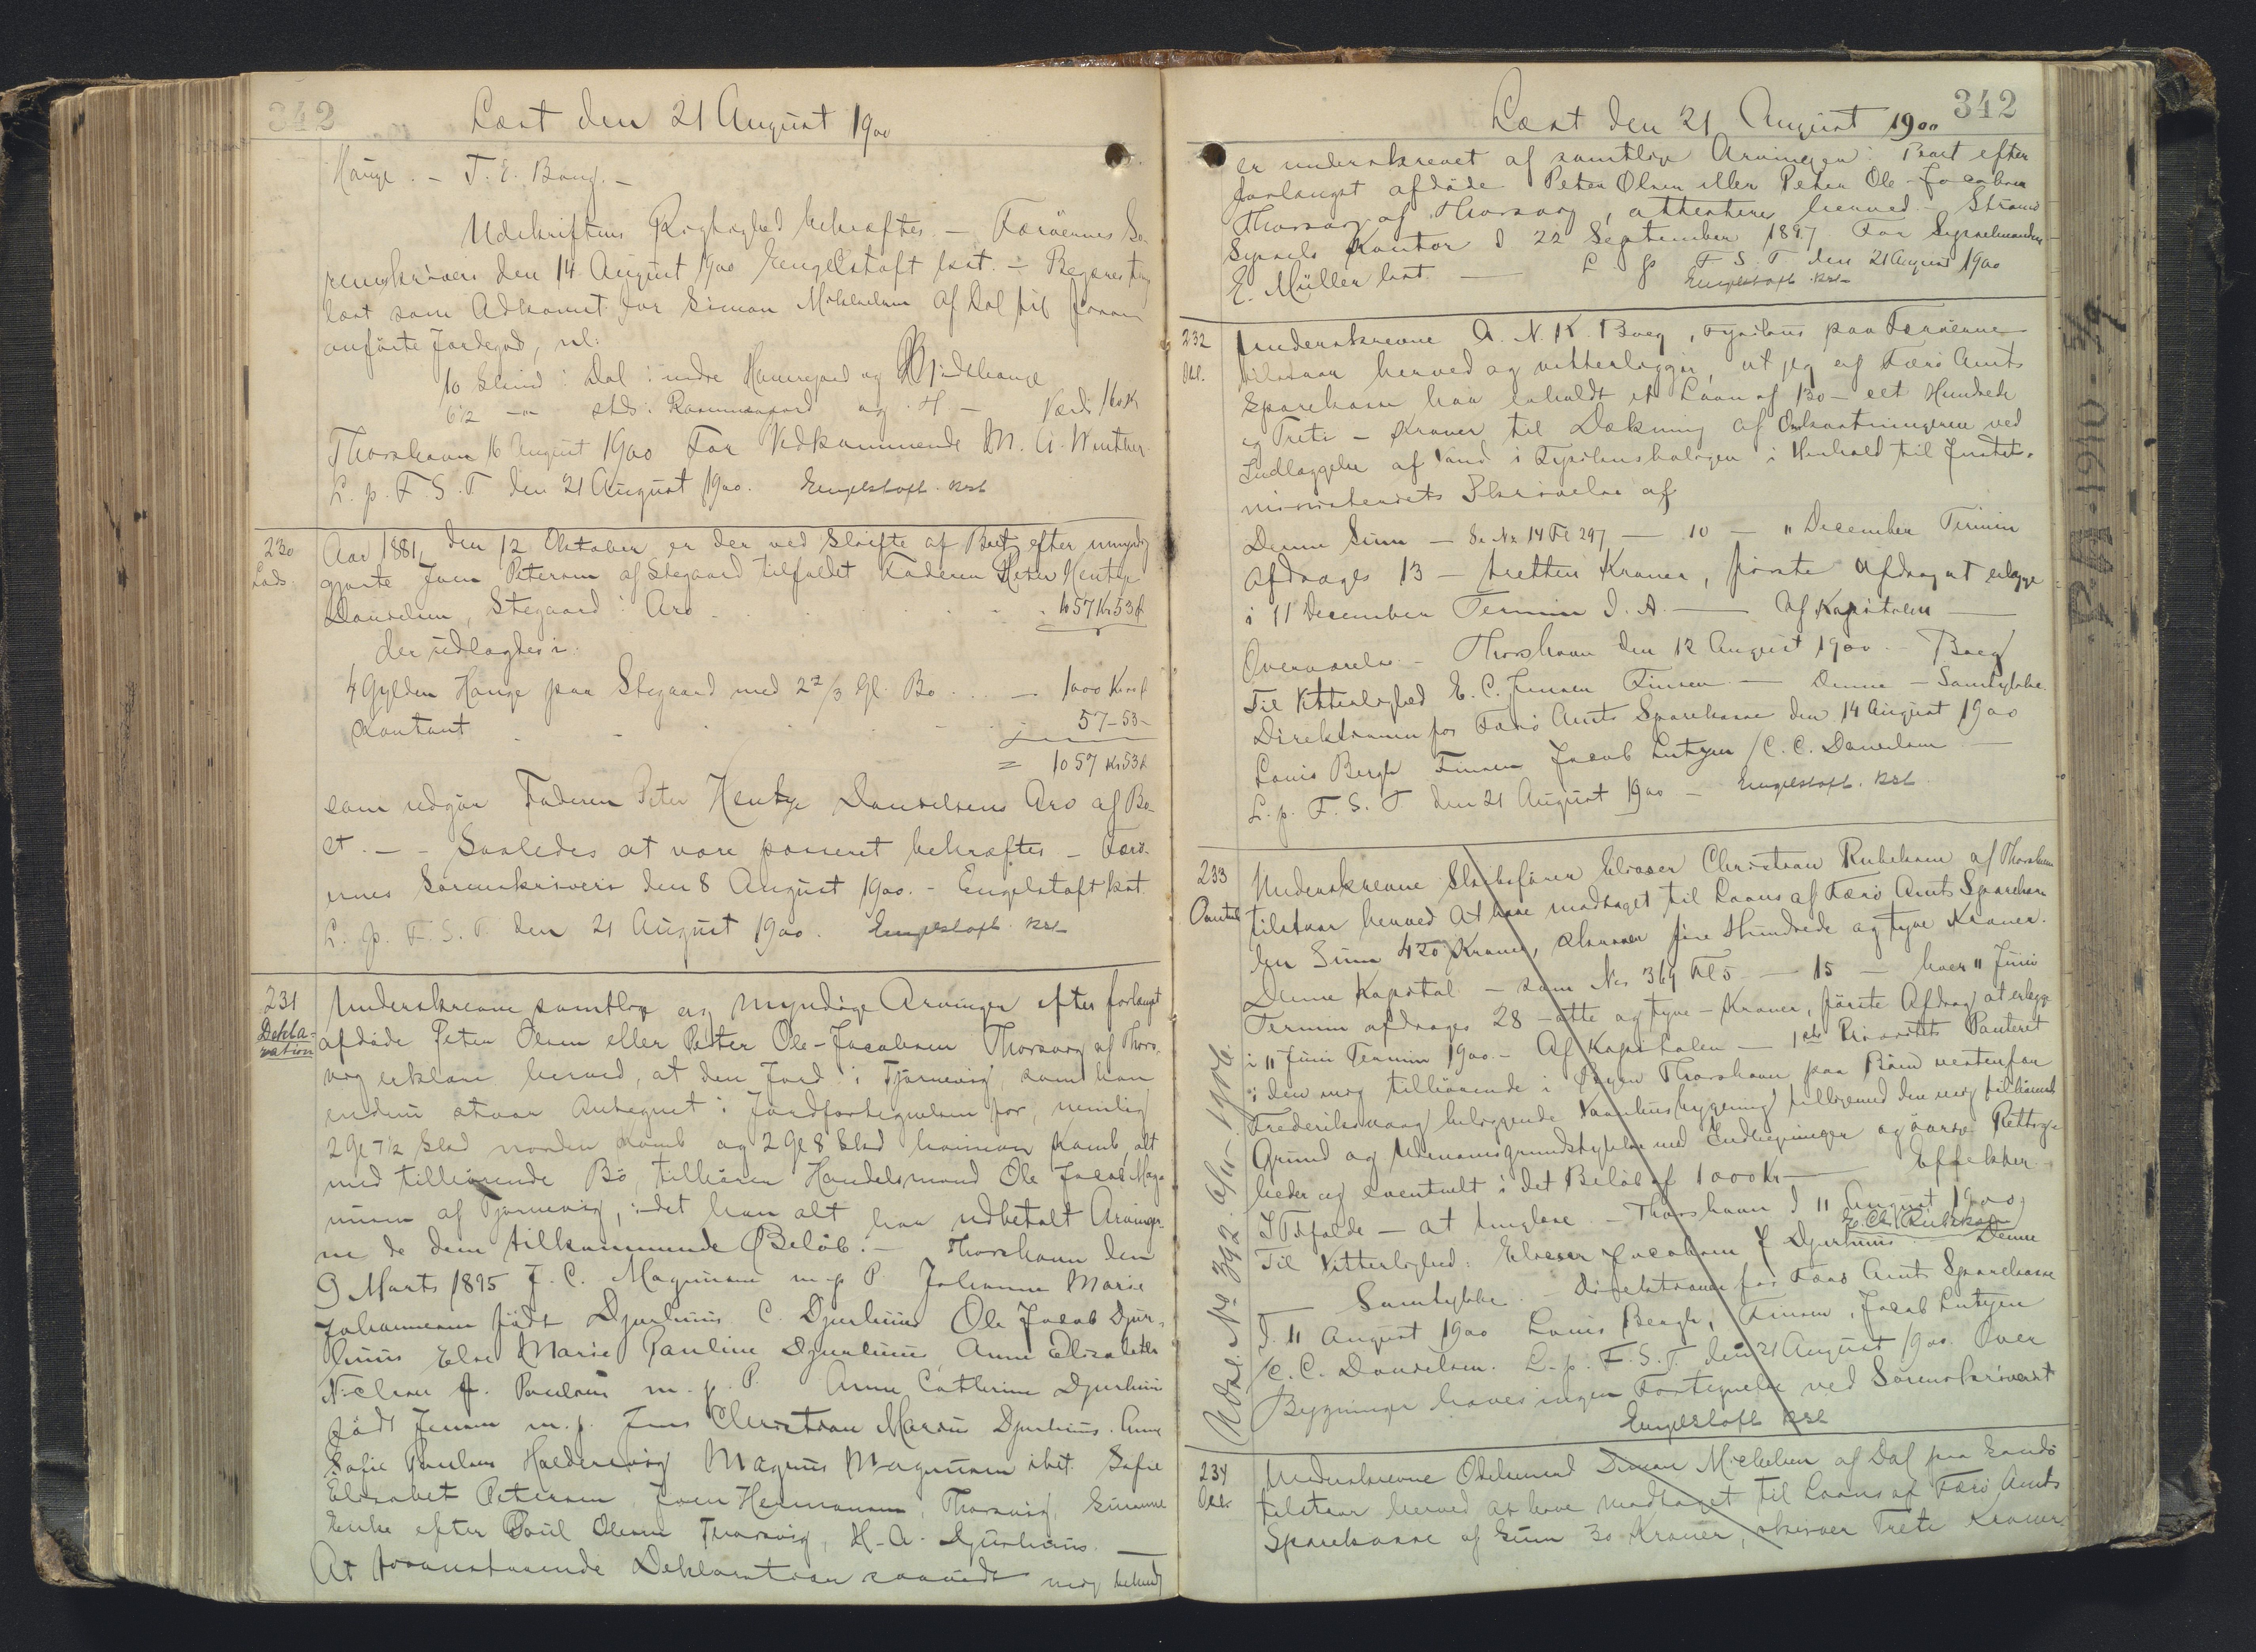 342
Læst den 21 August 1900
Hauge. - T. E. Bang. -
Udskriftens Rigtighed bekræftes - Færøernes So-
renskriveri den 14 August 1900 Engelstoft kst. - Begæres
læst som Adkomst for Simon Michelsen af Dal til foran
anførte Jordegods, nl:
10 Skind i Dal i indre Hauregaard og
6 1/2 -"- stds. i Rasmussgaard og H - Værdi 160 Kr
Thorshavn 16 August 1900 For Vedkommende M. A. Winther.
L. p. F. S. T den 21 August 1900. Engelstoft. kst
230
Aar 1881, den 12 Oktober er der ved Skifte af Boet efter umyndig
gjorte Joen Petersen af Stegaard tilfaldet Faderen Peter Hentze
Danielsen, Stegaard i Arv . . . . 1057 Kr 53 Ø
der udlagdes i:
4 Gylden Hauge paa Stegaard med 2 2/3 Gl. Bø . . . - 1000 Kr
Kontant . - . . - 57 - 53 -
= 1057 Kr 53 Ø
som udgør Faderen Peter Hentze Danielsens Arv af Bo-
et. - - Saaledes at være passeret bekræftes - Færø-
ernes Sorenskriveri den 8 August 1900. - Engelstoft kst.
L. p. F. S. T. den 21 August 1900. Engelstoft. kst
231
Dekla-
ration
Underskrevne samtlige og myndige Arvinger efter forlængst
afdøde Peter Olsen eller Peter Ole-Jacobsen Thorsvig af Thors-
vig erklære herved, at den Jord i Tjørnevig, som han
endnu staar antegnet i Jordfortegnelsen for, nemlig
2 Gl 7 1/2 Skd norden Kamb og 2 Gl 8 Skd Kamb, alt
med tilhørende Bø, tilhører Handelsmand Ole Jacob Mag-
nusen af Tjørnevig, idet han alt har udbetalt Arvinger-
ne de dem tilkommende Beløb. - Thorshavn den
9 Marts 1895 J. C. Magnusen m. p. P. Johanne Marie
Johannesen født Djurhuus C. Djurhuus Ole Jacob Djur-
huus Else Marie Pauline Djurhuus, Anne Elisabeth
Nielsen f. Poulsen m. p. P. Anne Cathrine Djurhuus
født Jensen m. p. Jens Christian Marius Djurhuus. Anne
Sofie Poulsen Haldersvig Magnus Magnusen ibid. Sofie
Elisabet Petersen Joen Hermansen, Thorsvig, Susanne
Enke efter Poul Olesen Thorsvig, H. A. Djurhuus. -
At foranstaaende Deklaration saavidt mig bekendt
342
Læst den 21 August 1900
er underskrevet af samtlige Arvinger i Boet efter
forlængst afdøde Peter Olsen eller Peter Ole-Jacobsen
Thorsvig af Thorsvig, attesteres herved - Strømø
Syssels Kontor d 22 September 1897 For Sysselmanden
E. Müller kst. - L. p. F. S. T den 21 August 1900
Engelstoft. kst
232
Obl.
Underskrevne A. N. K. Boeg, Fysikus paa Færøerne
tilstaar herved og vitterliggør, at jeg af Færø Amts
Sparekasse har erholdt et Laan af 130 - eet Hundrede
og Treti - Kroner til Dækning af Omkostningerne ved
Indlæggelse af Vand i Fysikusboligen i Henhold til Justits-
ministeriets Skrivelse af
Denne Sum - Se No 14 Fl 297 - 10 - 11 December Termin
afdrages 13 - tretten Kroner, første Afdrag at erlægge
i 11 December Termin d. A. - Af Kapitalen -
Overværelse - Thorshavn den 12 August 1900 - Boeg
Til Vitterlighed E. C. Jensen Finsen - Denne - Samtykke.
Direktionen for Færø Amts Sparekasse den 14 August 1900
Louis Bergh Finsen Jacob Lützen / C. C. Danielsen -
L. p. F. S. T den 21 August 1900 - Engelstoft. kst.
233
Underskrevne Skibsfører Elieser Christian Rubeksen af Thorshavn
tilstaar herved at have modtaget til Laans af Færø Amts Sparekasse
den Sum 420 Kroner, skriver fire Hundrede og tyve Kroner.
Denne Kapital - som No 369 Fl 5 - 15 - hver 11 Juni
Termin afdrages 28 - otte og tyve - Kroner, første Afdrag at erlægge
i 11 Juni Termin 1900. - Af Kapitalen - 1ste Prioritets Panteret
i den mig tilhørende i Thorshavn paa Bøen vestenfor
Frederiksvaag beliggende Vaaningshusbygning tilligemed den mig tilhørende
Grund og Udenomsgrundstykke med Indhegninger og øvrige Rettig-
heder og eventuelt i det Beløb af 1000 Kr - Effekter. -
I Tilfælde - at tinglæse. - Thorshavn d 11 August 1900
E. Chr. Rubeksen
Til Vitterlighed: Elieser Jacobsen J Djurhuus Denne
Samtykke. - Direktionen for Færø Amts Sparekasse
d. 11 August 1900 Louis Bergh, Finsen, Jacob Lützen
/C. C. Danielsen. L. p. F. S. T. den 21 August 1900. Over
Bygninger haves ingen Fortegnelse ved Sorenskriveriet
Engelstoft kst
Udsl. No 392 6/11 1908.
234
Underskrevne Odelsmand Simon Michelsen af Dal paa Sandø
tilstaar herved at have modtaget til Laans af Færø Amts
Sparekasse af Sum 30 Kroner, skriver Treti Kroner.